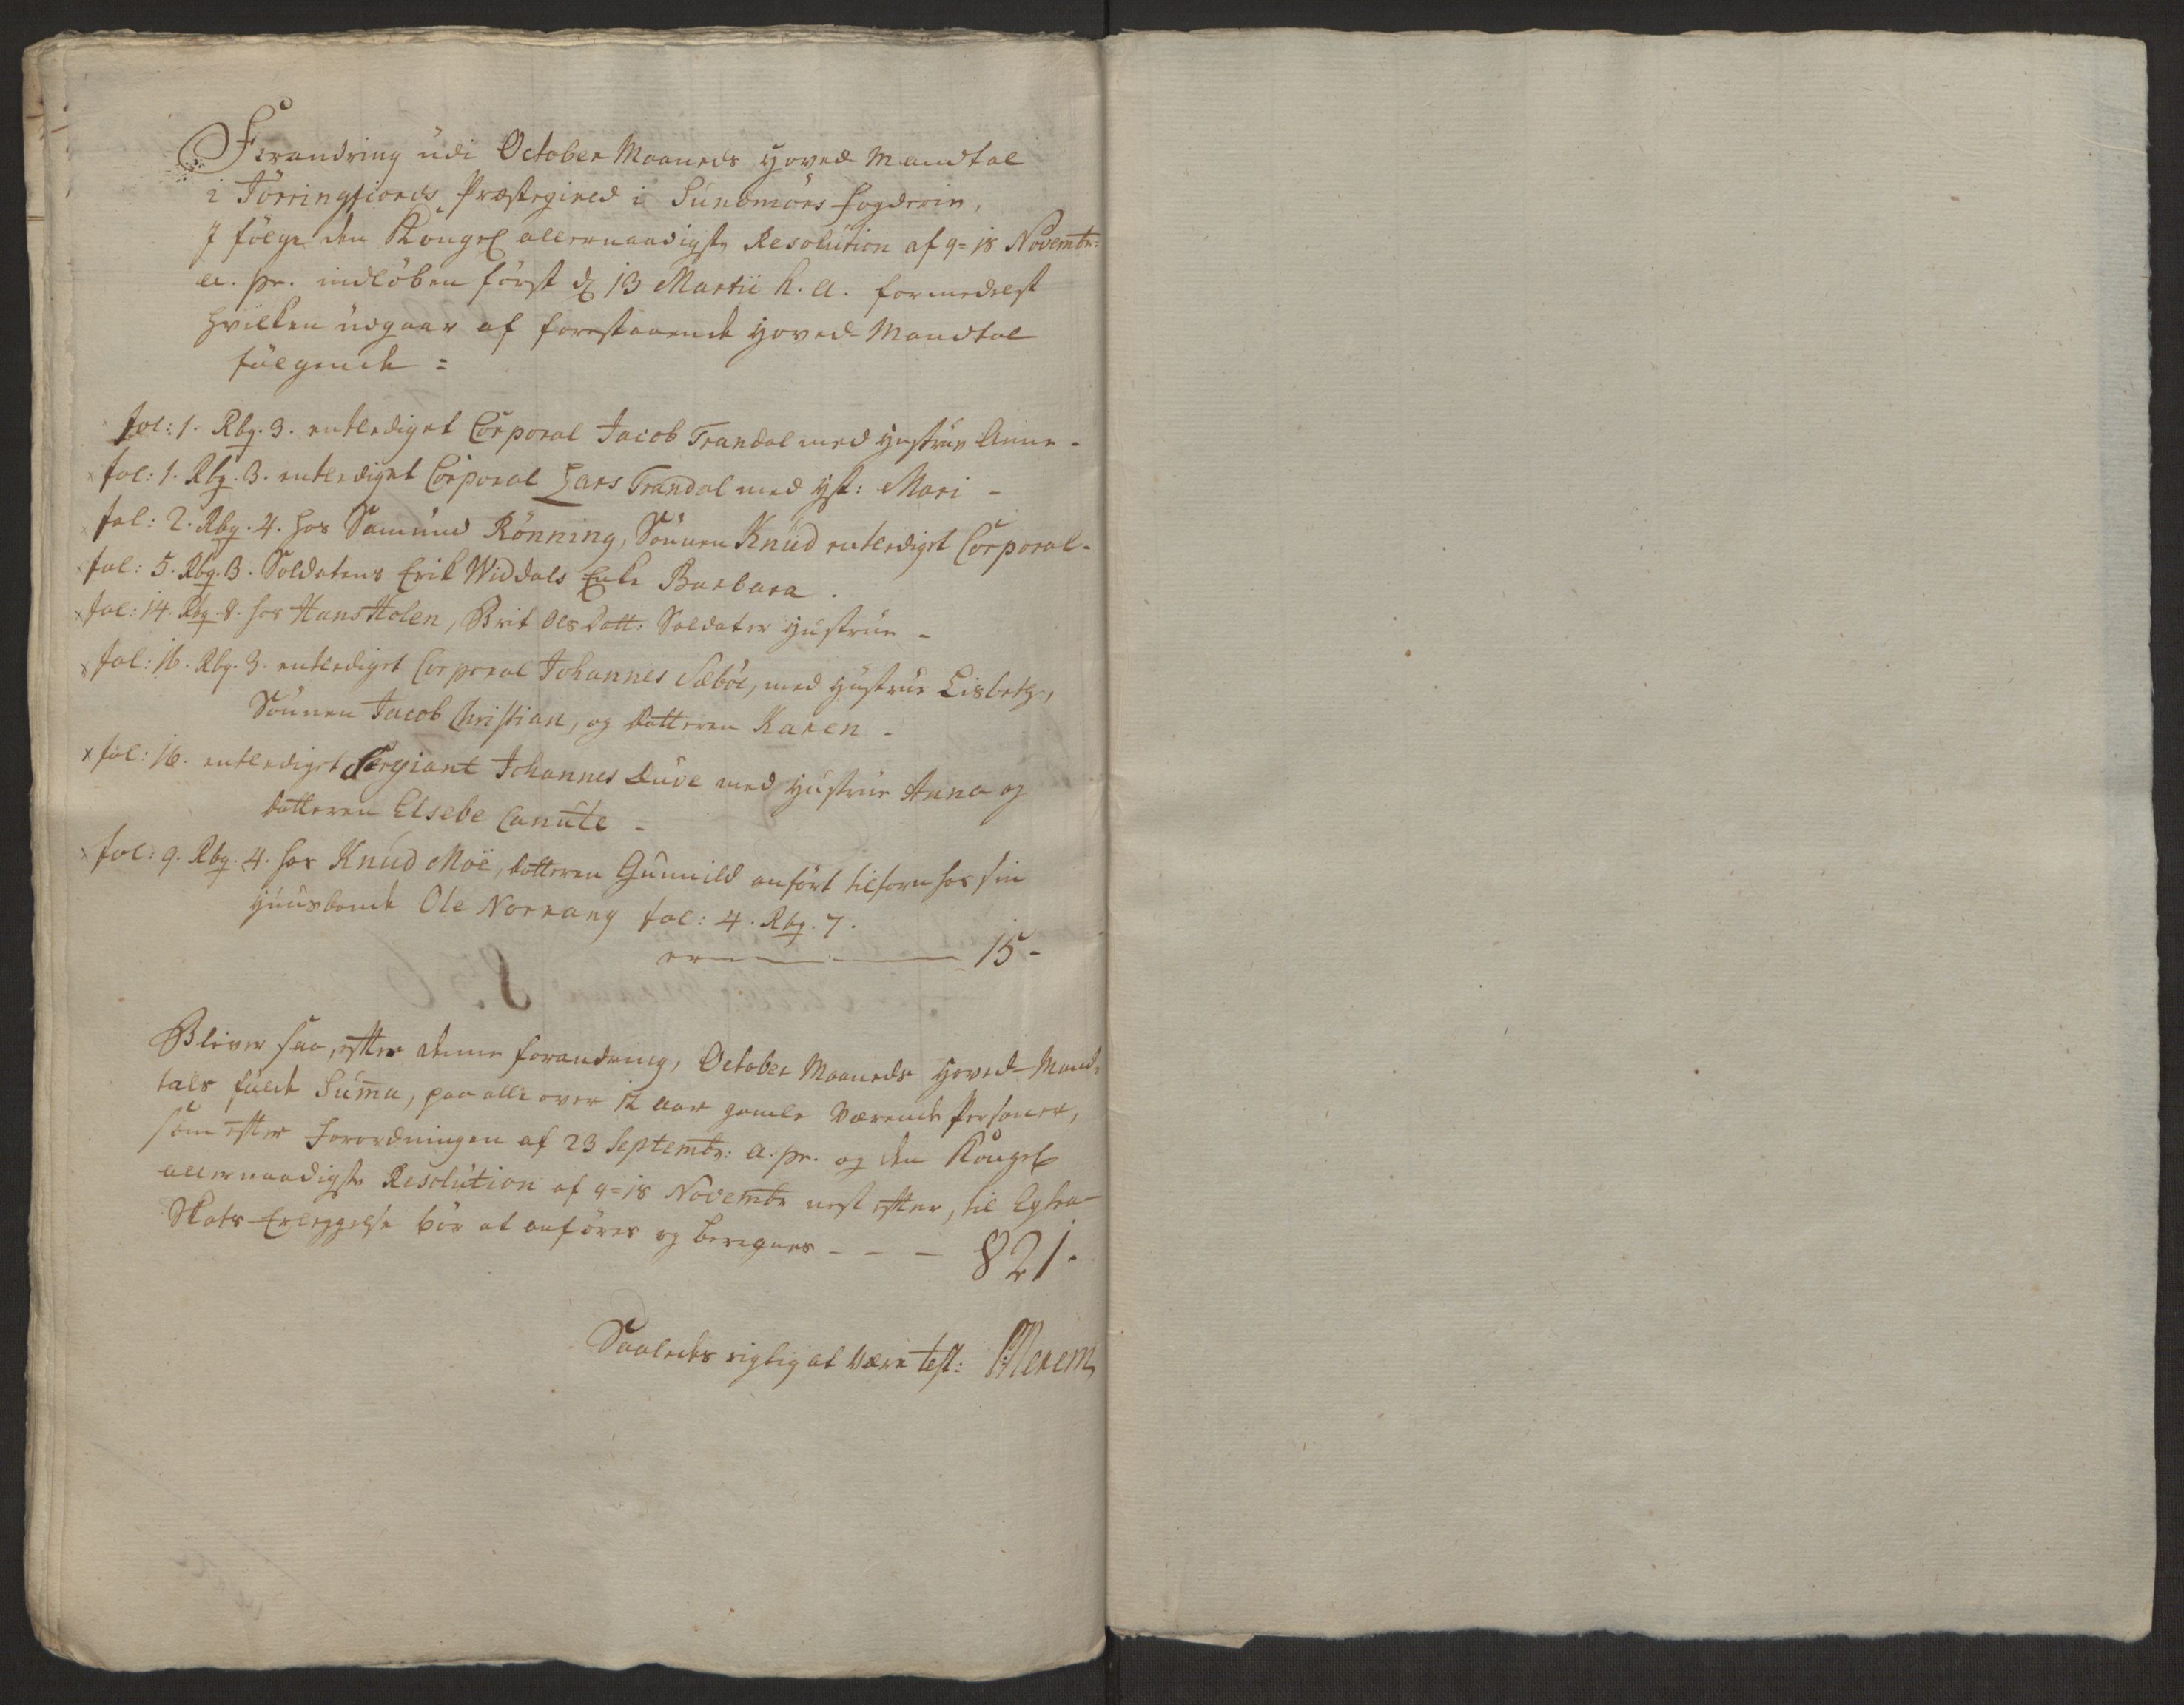 Forandring udi October Maaneds Hoved Mandtal
i Jörringfiords Præstegield i Sundmörs Fogderie,
I fölge den Kongel allernaadigste Resolution af 9=18 Novembr:
a. pr. indlöben först d 13 Martii h. a. formedelst
hvilken udgaar af forestaaende Hoved-Mandtal
fölgende =
fol: 1. Rbq. 3. entlediget Corporal Jacob Trandal med Hustrue Anne -
x fol: 1. Rbq. 3. entlediget Corporal Lars Trandal med Hst: Mari -
x fol: 2. Rbq. 4. hos Samund Rönning, Sönnen Knud entlediget Corporal -
x fol: 5. Rbq. 3. Soldatens Erik Widdals Enke Barbara .
x fol: 14. Rbq. 8. hos Hans Holen, Brit Ols Datt: Soldater Hustrue -
x fol: 16. Rbq. 3. entlediget Corporal Johannes Sæböe, med Hustrue Lisbeth,
Sönnen Jacob Christian, og Datteren Karen -
x fol: 16. entlediget Sergiant Johannes Duve med Hustrue Anna og
Datteren Elsebe Canute -
x fol: 9. Rbq. 4. hos Knud Moe, Datteren Gunnild anfört tilforn hos sin
Huusbonde Ole Norrang fol: 4. Rbq. 7.
er 15 -
Bliver saa, efter denne forandring, October Maaneds Hoved-Mand-
tals fulde Suma, paa alle over 12 Aar gamle værende Personer,
som efter Forordningen af 23 Septembr: a. pr. og den Kongel
allernaadigste Resolution af 9=18 Novembr nest efter, til Extra-
Skats-Erleggelse bör at anföres og beregnes - - - 821.
Saaledes rigtig at være test: